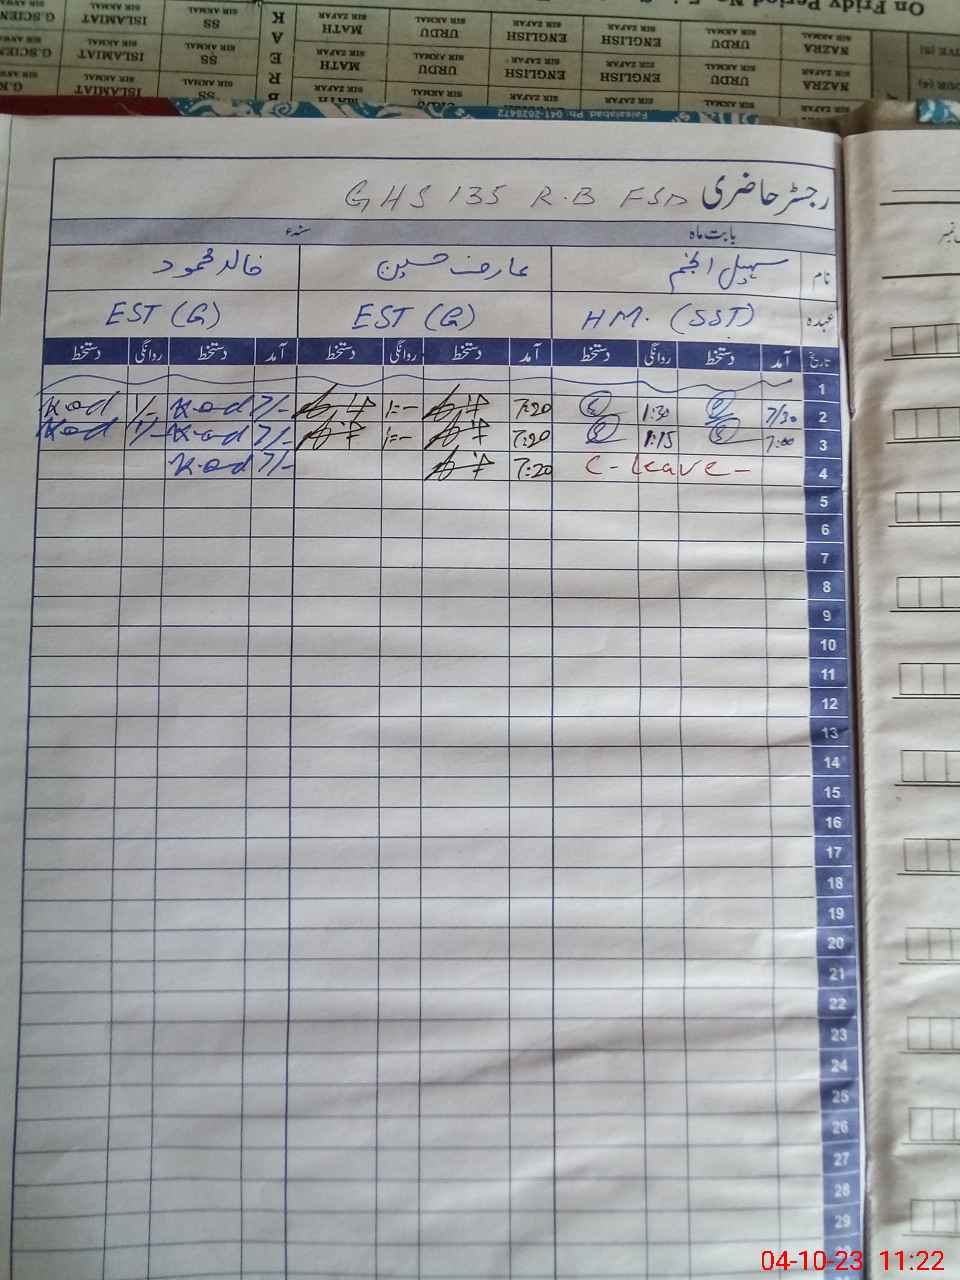 On Fridy Period No
NAZRA URDU ENGLISH ENGLISH URDU MATH SS ISLAMIAT G.SCIEN
SIR AKMAL SIR AKMAL SIR ZAFAR SIR ZAFAR SIR AKMAL SIR ZAFAR SIR AKMAL SIR AKMAL
NAZRA URDU ENGLISH ENGLISH URDU MATH SS ISLAMIAT G.SCIEN
B R E A K
Faisalabad. Ph: 041-2628472
رجسٹر حاضری GHS 135 R.B FSD
بابت ماہ سنہء
نام سہیل انجم عارف حسین خالد محمود
عہدہ HM. (SST) EST (G) EST (G)
تاریخ آمد دستخط روانگی دستخط آمد دستخط روانگی دستخط آمد دستخط روانگی دستخط
1
2 7/30 1:30 7:20 1:- 7/- Kod 1/- Kod
3 7:00 1:15 7:20 1:- 7/- Kod 1/- Kod
4 C- Leave - 7:20 7/- Kod
5
6
7
8
9
10
11
12
13
14
15
16
17
18
19
20
21
22
23
24
25
26
27
28
29
04-10-23 11:22